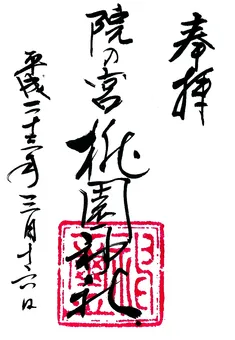 奉拝
院の宮 桃園神社
平成二十三年三月十六日